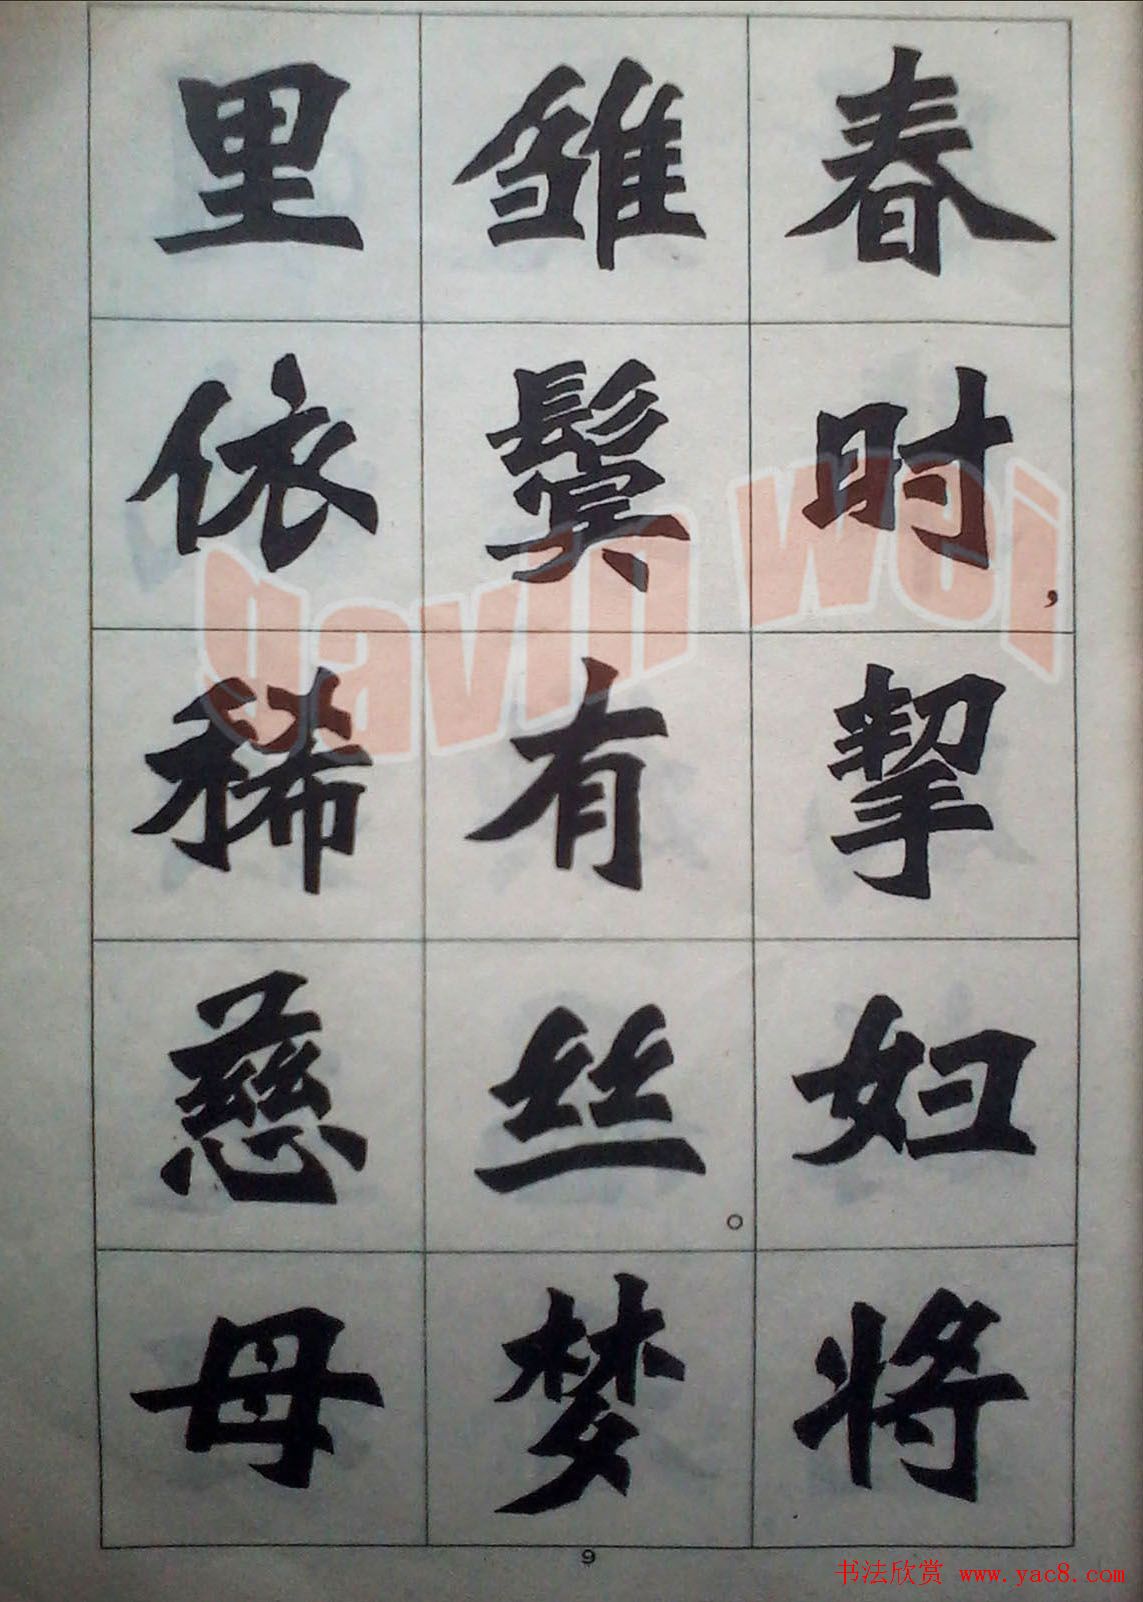 春时，挈妇将
雏鬓有丝。梦
里依稀慈母
9
gavin wei
书法欣赏 www.yac8.com